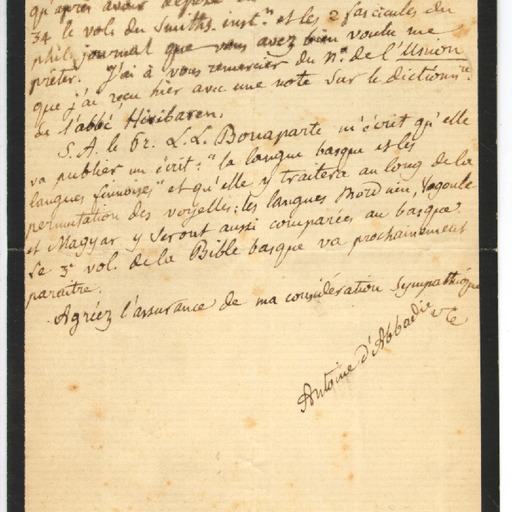 qu'après avoir déposé
34 le vol. du Smiths. inst.n et les 2 fascicules du
phil. journal que vous avez bien voulu me
prêter. J'ai à vous remercier du n.o de l'Union
que j'ai reçu hier avec une note sur le dictionn.re
de l'abbé Hiribaren.
S. A. le Pr. L. L. Bonaparte m'écrit qu'elle
va publier un écrit: "la langue basque et les
langues finnoises" et qu'elle y traitera au long de la
permutation des voyelles; les langues Mordvin, Vogoule
et Magyar y seront aussi comparées au basque.
Le 3e vol. de la Bible basque va prochainement
paraitre.
Agréez l'assurance de ma considération sympathique
Antoine d'Abbadie